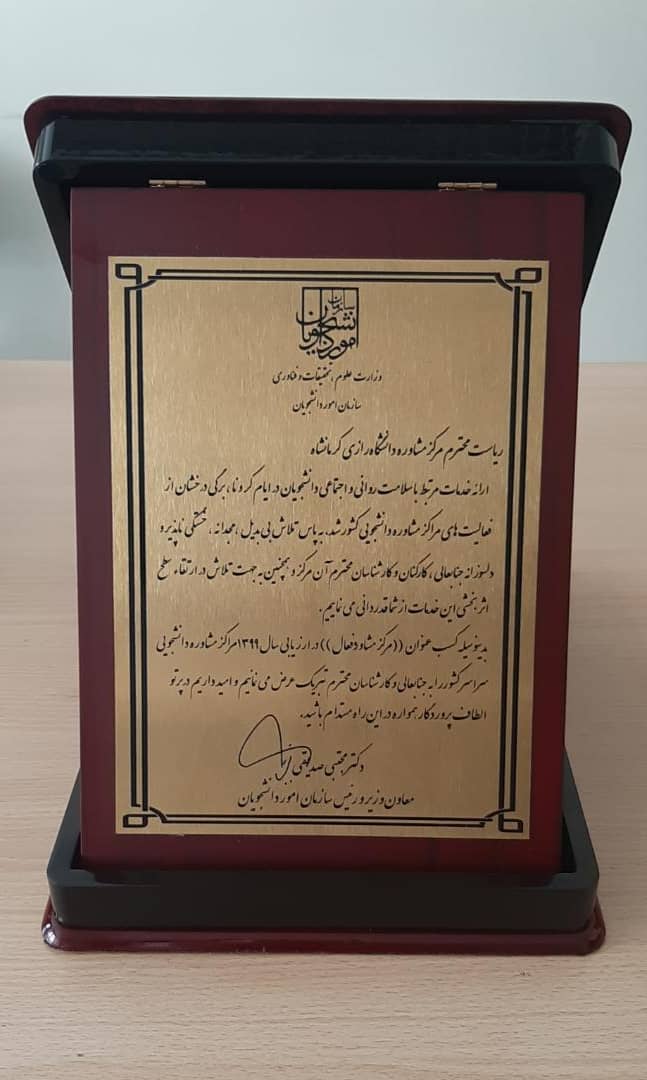 سازمان
امور دانشجویان
وزارت علوم، تحقیقات و فناوری
سازمان امور دانشجویان
ریاست محترم مرکز مشاوره دانشگاه رازی کرمانشاه
ارائه خدمات مرتبط با سلامت روانی و اجتماعی دانشجویان در ایام کرونا، برگی درخشان از
فعالیت های مراکز مشاوره دانشجویی کشور شد، به پاس تلاش بی بدیل، مجدانه، خستگی ناپذیر و
دلسوزانه جنابعالی، کارکنان و کارشناسان محترم آن مرکز و همچنین به جهت تلاش در ارتقاء سطح
اثر بخشی این خدمات از شما قدردانی می نماییم.
بدینوسیله کسب عنوان ((مرکز مشاوره فعال)) در ارزیابی سال ۱۳۹۹ مراکز مشاوره دانشجویی
سراسر کشور را به جنابعالی و کارشناسان محترم تبریک عرض می نمائیم و امید داریم در پرتو
الطاف پروردگار همواره در این راه مستدام باشید.
دکتر مجتبی صدیقی
معاون وزیر و رئیس سازمان امور دانشجویان